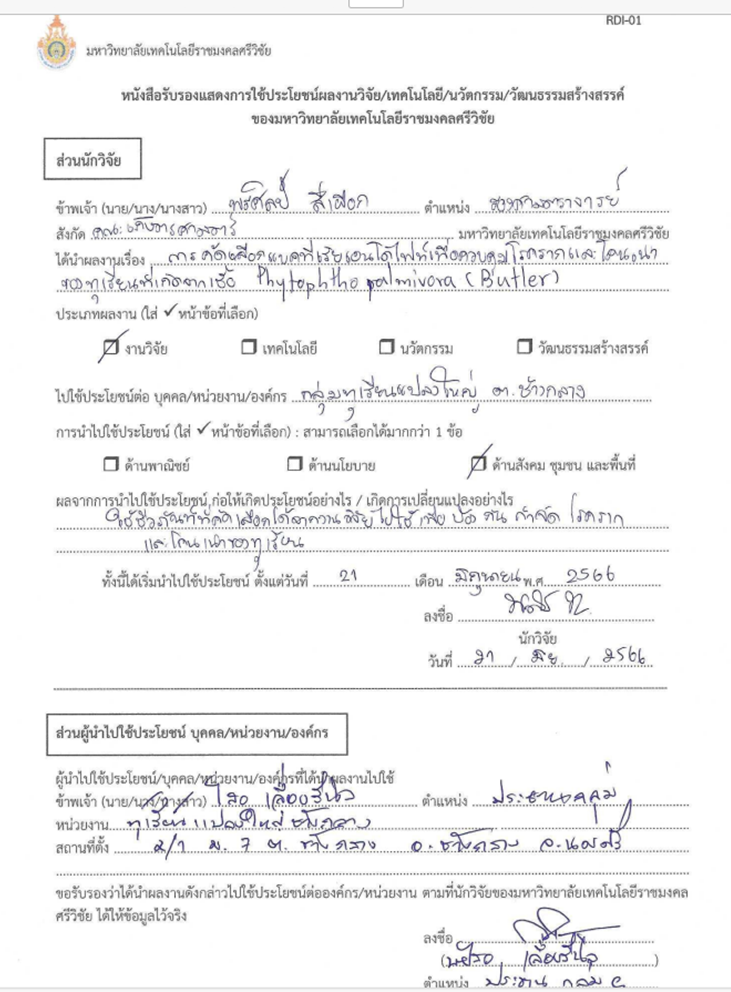 RDI-01
มหาวิทยาลัยเทคโนโลยีราชมงคลศรีวิชัย
หนังสือรับรองแสดงการใช้ประโยชน์ผลงานวิจัย/เทคโนโลยี/นวัตกรรม/วัฒนธรรมสร้างสรรค์
ของมหาวิทยาลัยเทคโนโลยีราชมงคลศรีวิชัย
ส่วนนักวิจัย
ข้าพเจ้า (นาย/นาง/นางสาว) พรศิลป์ สีเผือก ตำแหน่ง รองศาสตราจารย์
สังกัด คณะ มหาวิทยาลัยเทคโนโลยีราชมงคลศรีวิชัย
ได้นำผลงานเรื่อง การคัดเลือกแบคทีเรียเอนโดไฟท์เพื่อควบคุมโรครากและโคนเน่า
ของทุเรียนที่เกิดจากเชื้อ Phytophtho palmivora (Butler)
ประเภทผลงาน (ใส่ ✓ หน้าข้อที่เลือก)
งานวิจัย เทคโนโลยี นวัตกรรม วัฒนธรรมสร้างสรรค์
ไปใช้ประโยชน์ต่อ บุคคล/หน่วยงาน/องค์กร กลุ่มทุเรียนแปลงใหญ่ ต. ช้างกลาง
การนำไปใช้ประโยชน์ (ใส่ ✓ หน้าข้อที่เลือก) : สามารถเลือกได้มากกว่า 1 ข้อ
ด้านพาณิชย์ ด้านนโยบาย ด้านสังคม ชุมชน และพื้นที่
ผลจากการนำไปใช้ประโยชน์ ก่อให้เกิดประโยชน์อย่างไร / เกิดการเปลี่ยนแปลงอย่างไร
ใช้ชีวภัณฑ์ที่คัดเลือกได้จากงานวิจัยไปใช้เพื่อป้องกันกำจัด โรคราก
และโคนเน่าของทุเรียน
ทั้งนี้ได้เริ่มนำไปใช้ประโยชน์ ตั้งแต่วันที่ 21 เดือน มิถุนายน พ.ศ. 2566
ลงชื่อ
นักวิจัย
วันที่ 21 / มิย. / 2566
ส่วนผู้นำไปใช้ประโยชน์ บุคคล/หน่วยงาน/องค์กร
ผู้นำไปใช้ประโยชน์/บุคคล/หน่วยงาน/องค์กรที่ได้นำผลงานไปใช้
ข้าพเจ้า (นาย/นาง/นางสาว) ตำแหน่ง ประธานกลุ่ม
หน่วยงาน ทุเรียนแปลงใหญ่ ช้างกลาง
สถานที่ตั้ง 2/1 ม. 7 ต. ช้างกลาง อ. ช้างกลาง จ. นครศรี
ขอรับรองว่าได้นำผลงานดังกล่าวไปใช้ประโยชน์ต่อองค์กร/หน่วยงาน ตามที่นักวิจัยของมหาวิทยาลัยเทคโนโลยีราชมงคล
ศรีวิชัย ได้ให้ข้อมูลไว้จริง
ลงชื่อ
ตำแหน่ง ประธาน กลุ่ม